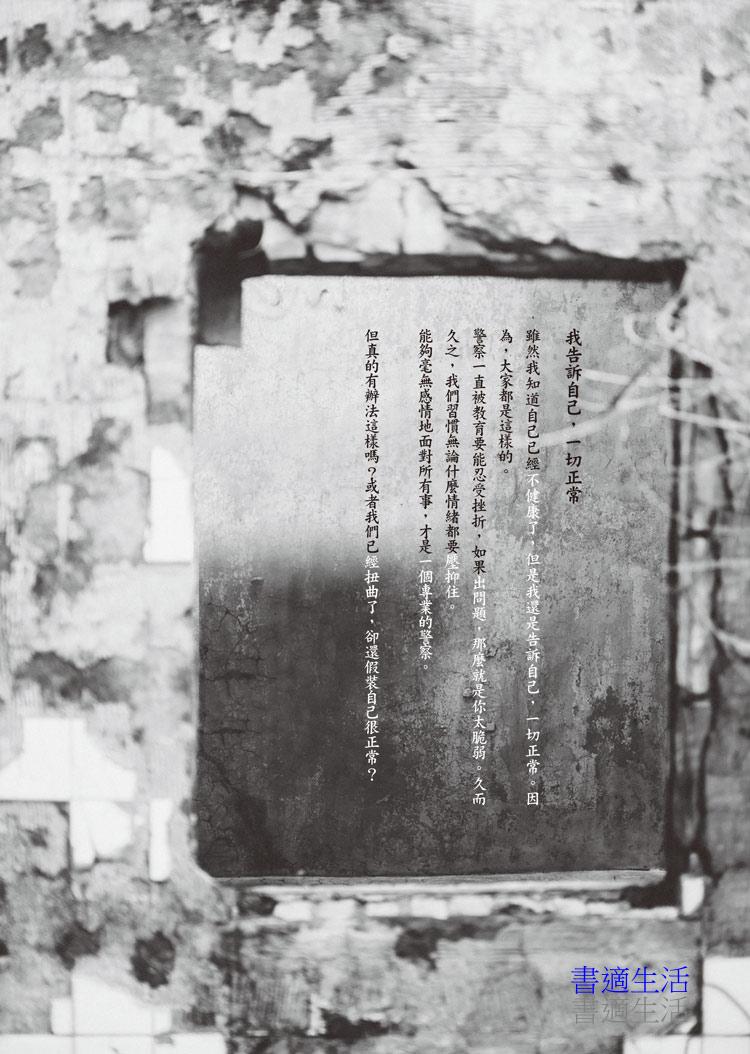 我告訴自己，一切正常
雖然我知道自己已經不健康了，但是我還是告訴自己，一切正常。因
為，大家都是這樣的。
警察一直被教育要能忍受挫折，如果出問題，那麼就是你太脆弱。久而
久之，我們習慣無論什麼情緒都要壓抑住。
能夠毫無感情地面對所有事，才是一個專業的警察。
但真的有辦法這樣嗎？或者我們已經扭曲了，卻還假裝自己很正常？
書適生活